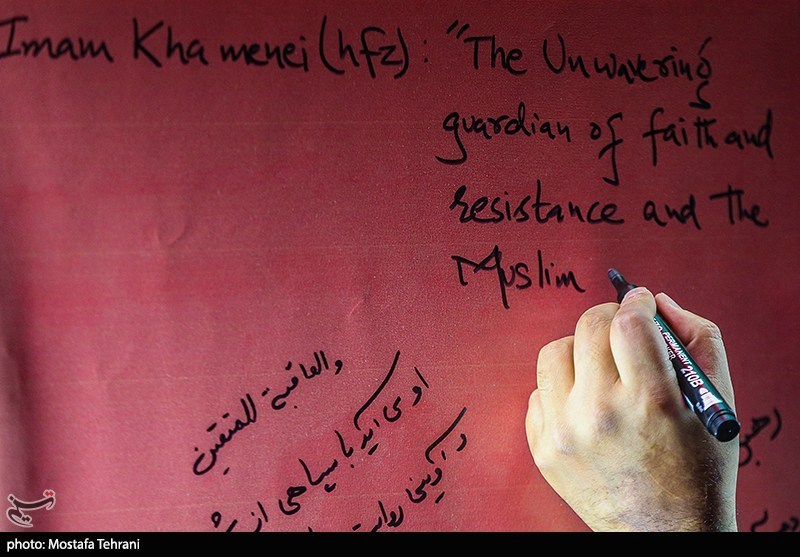 Imam Khamenei (hfz): "The Unwavering
guardian of faith and
resistance and The
Muslim
والعاقبة للمتقین
او می‌آید با سیاهی از
و آوینی روایت
PERMANENT
MARKER
210B
تسنیم
photo: Mostafa Tehrani